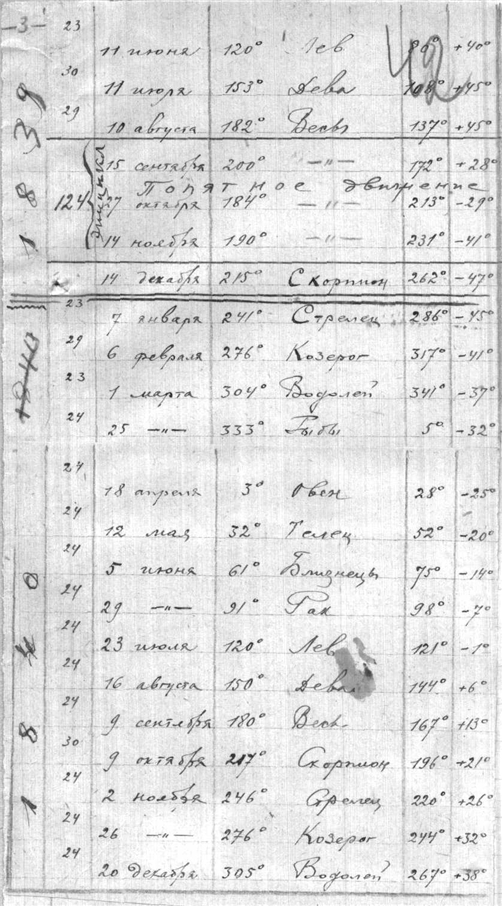 -3-
23
11 июня 120° Лев 80° +40°
30
11 июля 153° Дева 108° +45°
29
10 августа 182° Весы 137° +45°
15 сентября 200° —"— 172° +28°
Попятное движение
124 17 октября 184° —"— 213° -29°
14 ноября 190° —"— 231° -41°
14 декабря 215° Скорпион 262° -47°
1839
23
7 января 241° Стрелец 286° -45°
29
6 февраля 276° Козерог 317° -41°
23
1 марта 304° Водолей 341° -37°
24
25 —"— 333° Рыбы 5° -32°
24
18 апреля 3° Овен 28° -25°
24
12 мая 32° Телец 52° -20°
24
5 июня 61° Близнецы 75° -14°
24
29 —"— 91° Рак 98° -7°
24
23 июля 120° Лев 121° -1°
24
16 августа 150° Дева 144° +6°
24
9 сентября 180° Весы 167° +13°
30
9 октября 217° Скорпион 196° +21°
24
2 ноября 246° Стрелец 220° +26°
24
26 —"— 276° Козерог 244° +32°
24
20 декабря 305° Водолей 267° +38°
1840